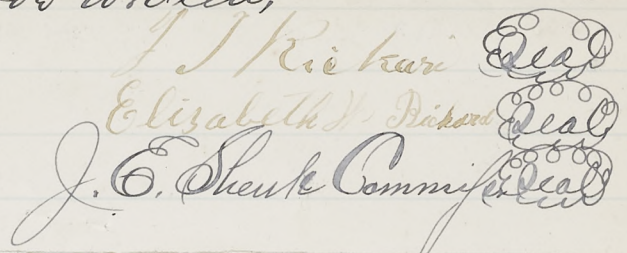 J J Rickard Seal
Elizabeth W. Rickard Seal
J. E. Shenk Commissr Seal